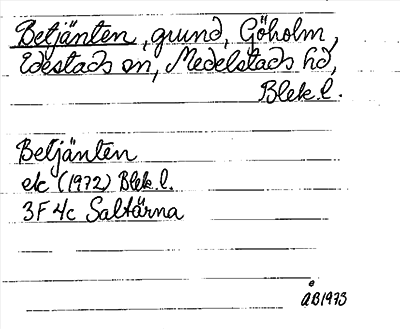 Betjänten, grund, Göholm,
Edestads sn, Medelstads hd,
Blek.l.
Betjänten
ek (1972) Blek.l.
3F 4c Saltärna
ÅB1973